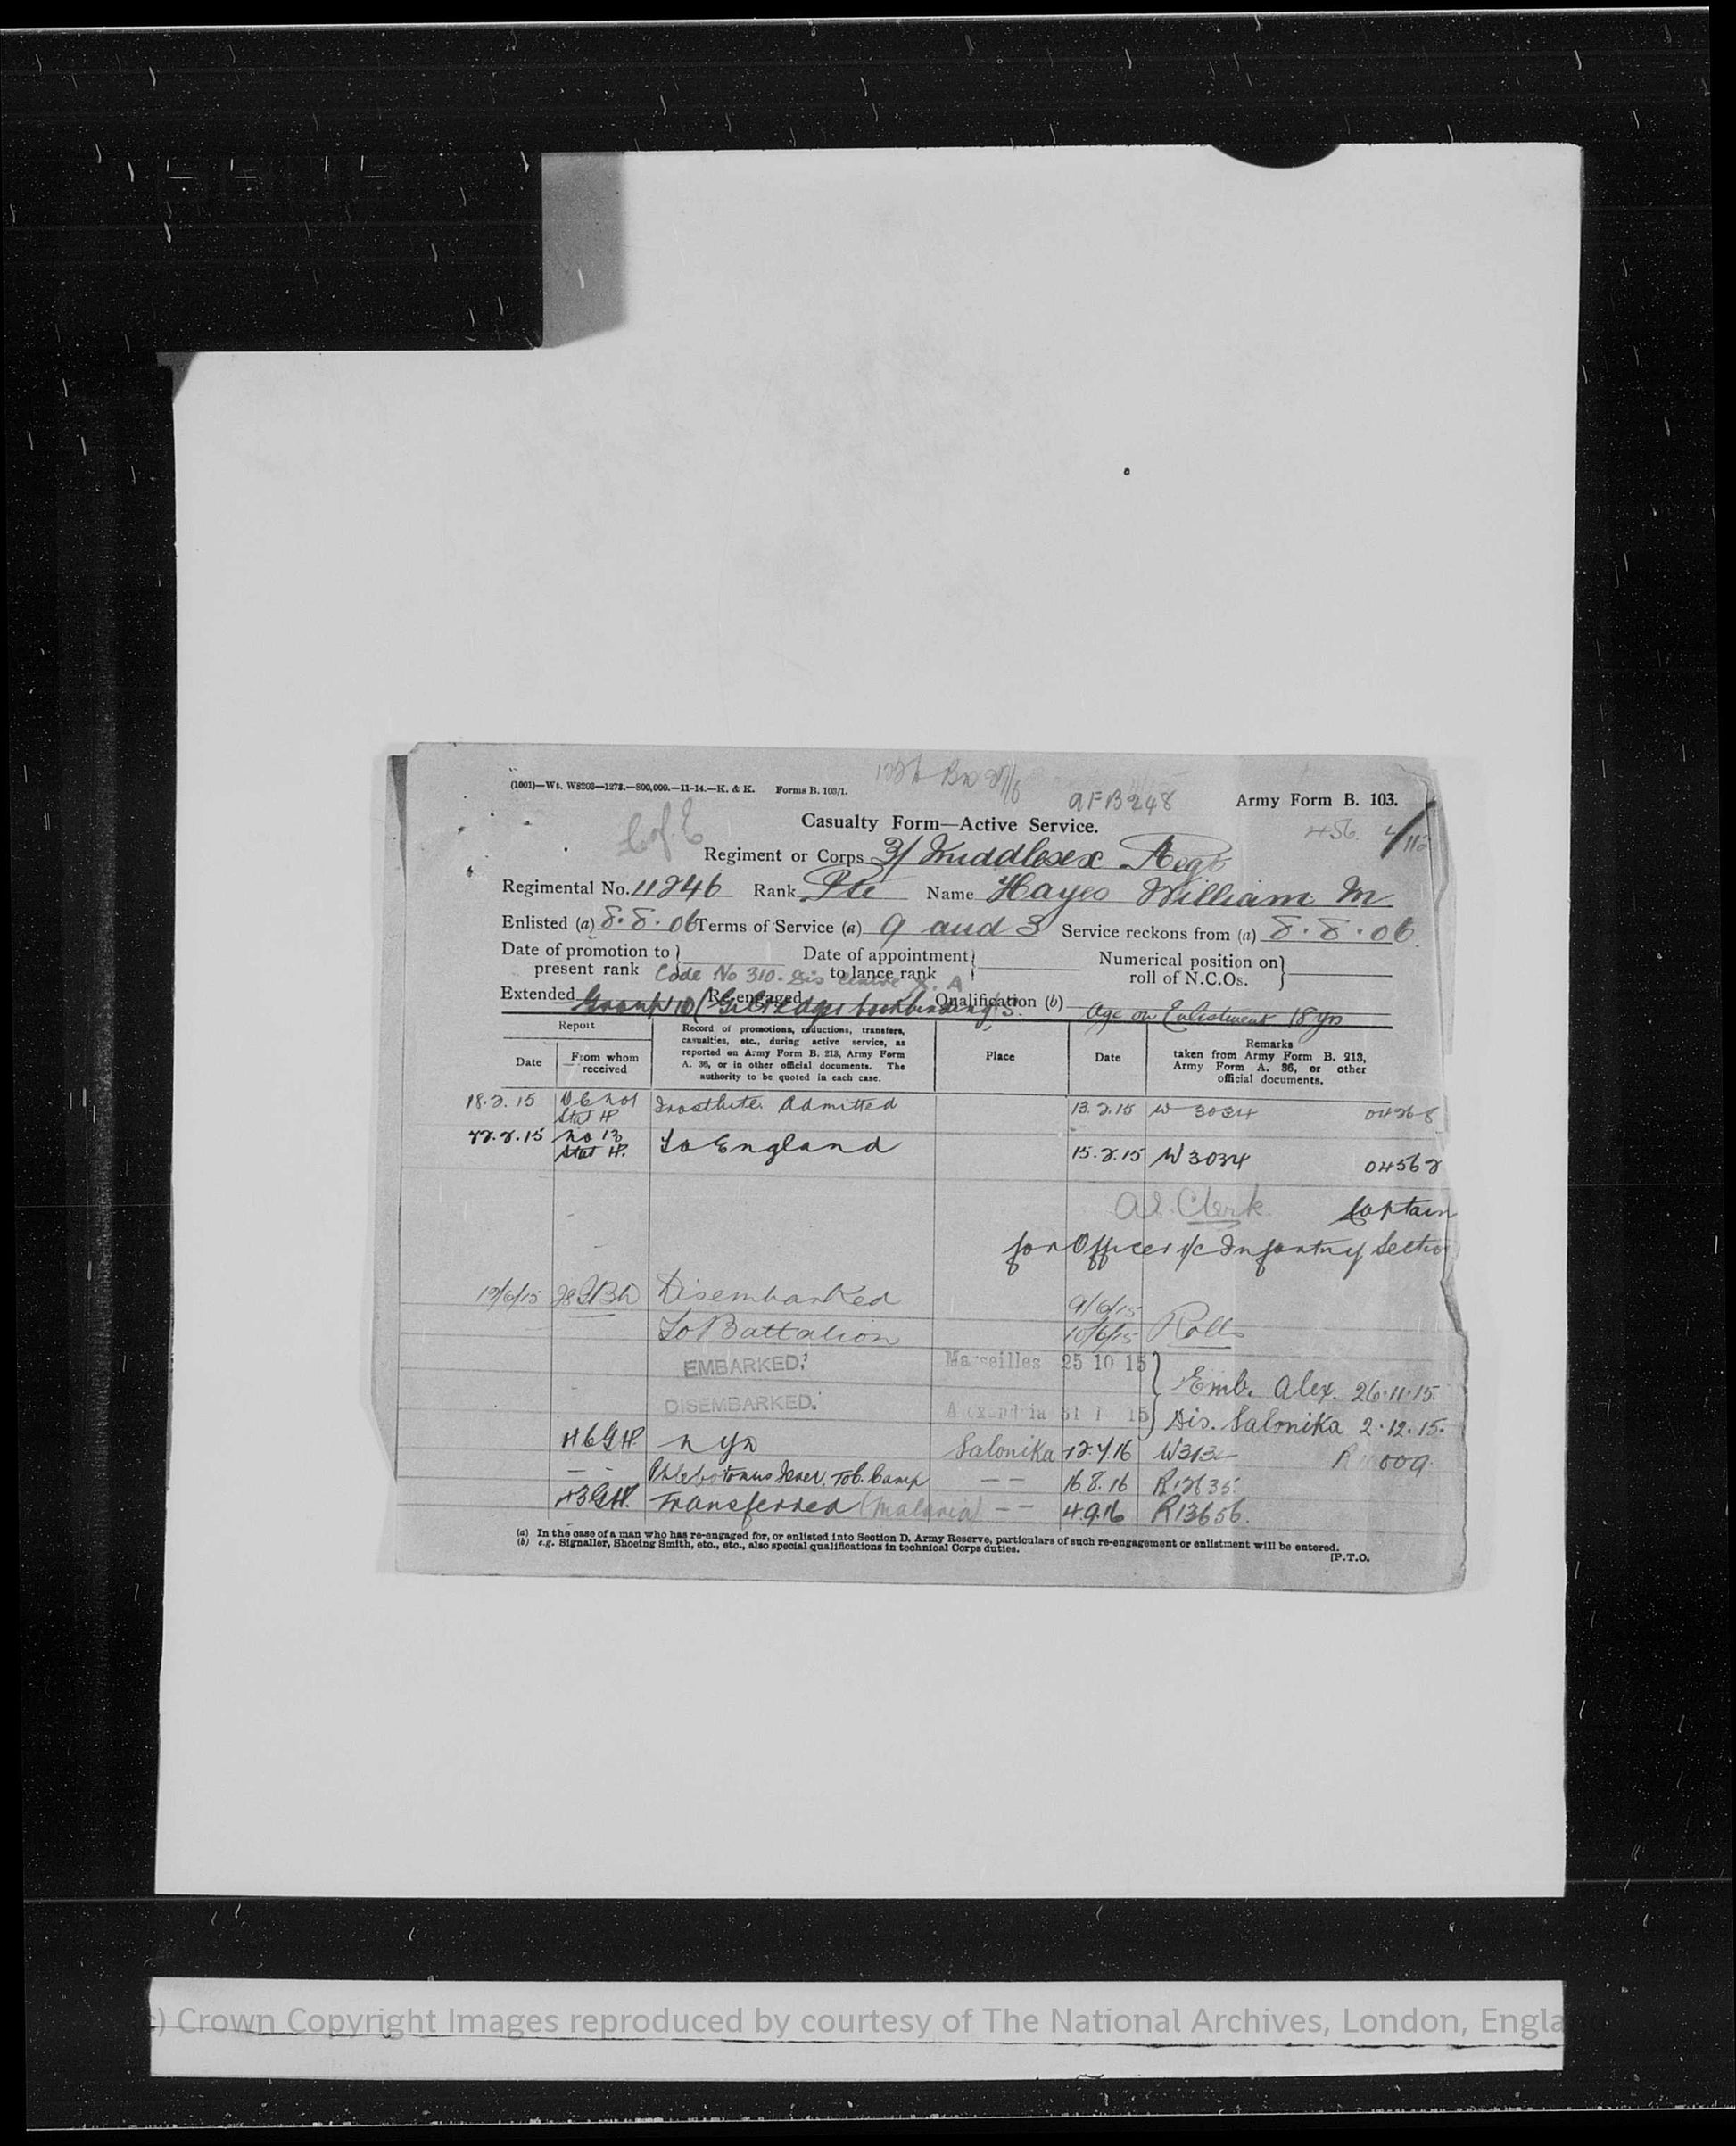 (1001)—Wt. W8203—1273.—800,000.—11-14.—K. & K. Forms B. 103/1.
AFB248
Army Form B. 103.
C of E
Casualty Form—Active Service.
456
Regiment or Corps 3/ Middlesex Regt
Regimental No. 11246 Rank Pte Name Hayes William M
Enlisted (a) 8.8.06 Terms of Service (a) 9 and 3 Service reckons from (a) 8.8.06.
Date of promotion to present rank
Date of appointment to lance rank
Numerical position on roll of N.C.Os.
Code No 310. Dis
Extended Re-engaged Qualification (b)
Group 10 (Gilt edger bookbinding)
Age on Enlistment 18 yrs
Report
Date
From whom received
Record of promotions, reductions, transfers, casualties, etc., during active service, as reported on Army Form B. 213, Army Form A. 36, or in other official documents. The authority to be quoted in each case.
Place
Date
Remarks taken from Army Form B. 213, Army Form A. 36, or other official documents.
18.2.15 Stat H Admitted 13.2.15 W 3034 04268
22.2.15 No 13 Stat H. To England 15.2.15 W3034 04562
Clerk Captain
for Officer i/c Infantry Section
Disembarked 9/6/15
To Battalion 10/6/15 Rolls
EMBARKED. Marseilles 25 10 15 Emb. Alex. 26.11.15.
DISEMBARKED. Alexandria 31 15 Dis. Salonika 2.12.15.
H6GH NYD Salonika 12.7.16 009
— — Phlebotomus Fever. — — 16.8.16 R12635
43GH. Transferred (Malaria) — — 4.9.16 R13656.
(a) In the case of a man who has re-engaged for, or enlisted into Section D, Army Reserve, particulars of such re-engagement or enlistment will be entered.
(b) e.g. Signaller, Shoeing Smith, etc., etc., also special qualifications in technical Corps duties.
[P.T.O.
) Crown Copyright Images reproduced by courtesy of The National Archives, London, Engla